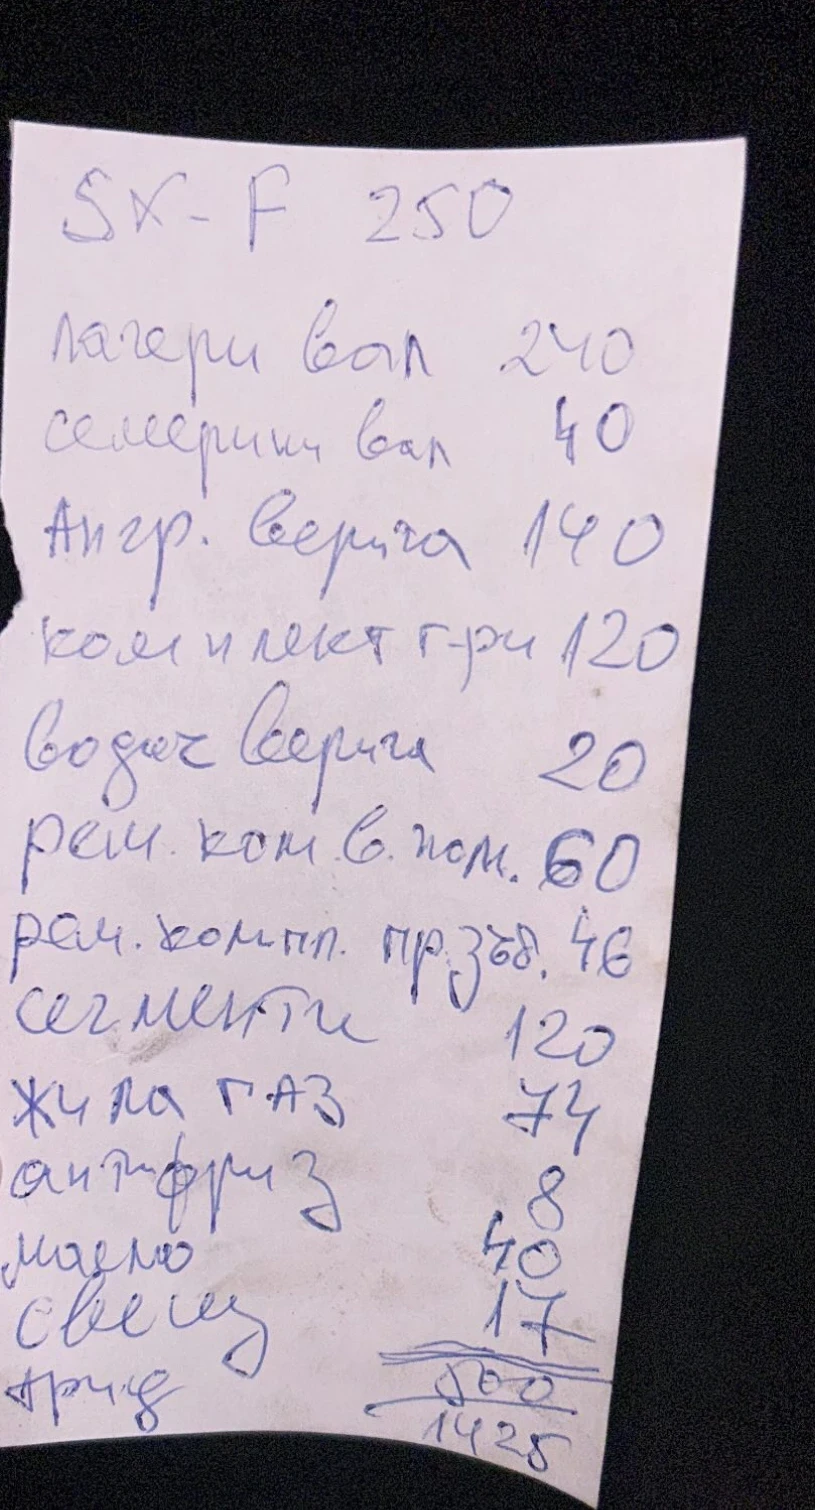 SX-F 250
лагери вал 240
семеринги вал 40
Ангр. верига 140
комплект г-ри 120
водач верига 20
рем. ком. в. пом. 60
рем. компл. пр.зъб. 46
сегменти 120
жила ГАЗ 74
антифриз 8
масло 40
свещ 17
труд 500
1425